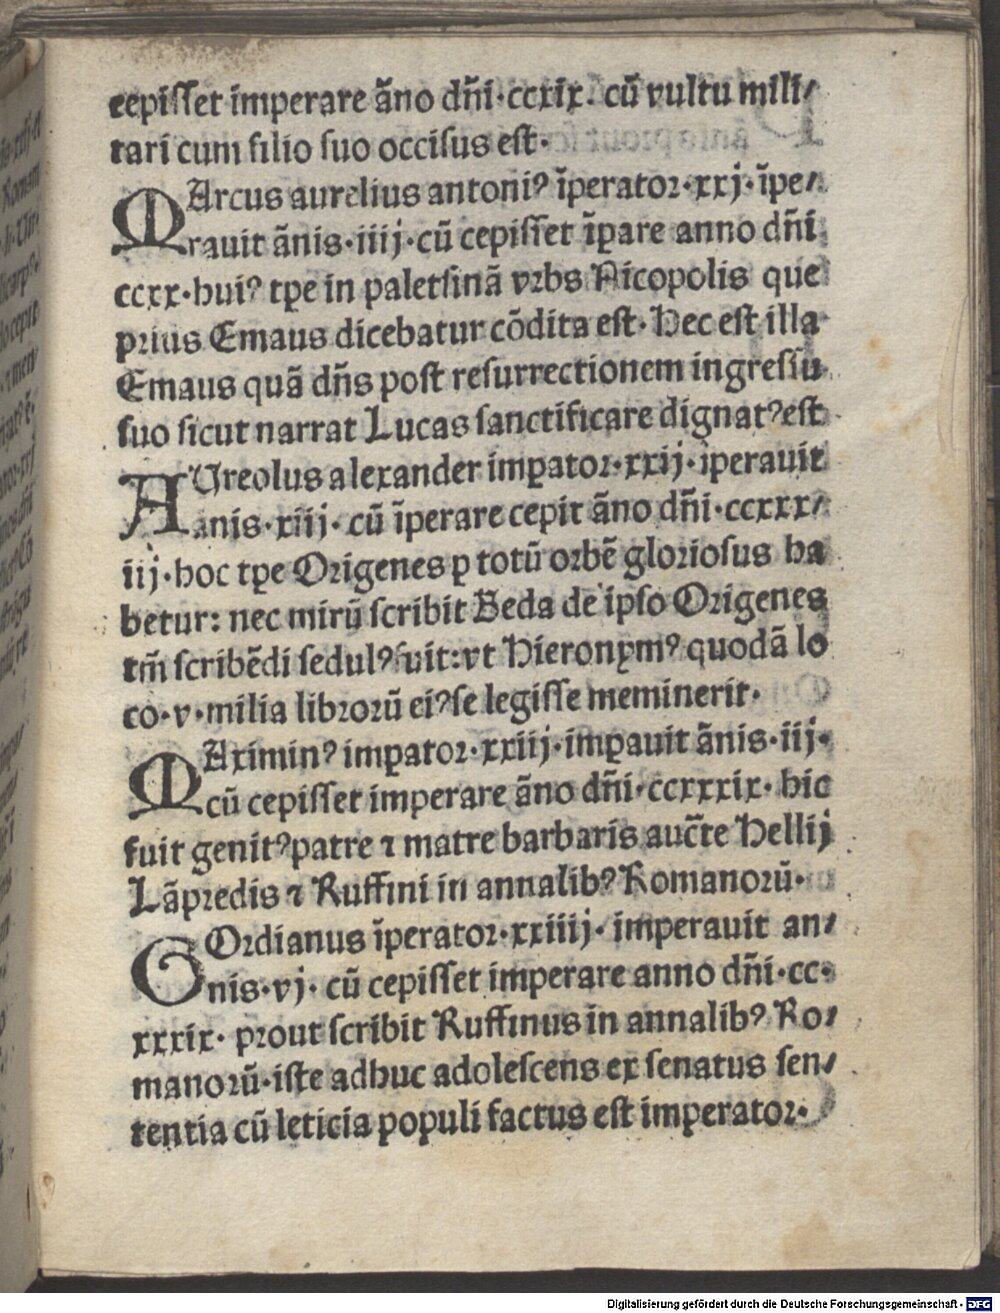 cepisset imperare āno dn̄i·ccxix· cū vultu mili⸗
tari cum filio suo occisus est·
MArcus aurelius antoniꝰ īperator·xxj·īpe⸗
rauit ānis·iiij·cū cepisset īꝑare anno dn̄i
ccxx·huiꝰ tꝑe in paletsinā vrbs Nicopolis que
prius Emaus dicebatur cōdita est·Hec est illa
Emaus quā dn̄s post resurrectionem ingressu
suo sicut narrat Lucas sanctificare dignatꝰest
AUreolus alexander imꝑator·xxij·iperauit
anis·xiij· cū īperare cepit āno dn̄i·ccxxx⸗
iij·hoc tꝑe Origenes ꝑ totū orbē gloriosus ha
betur: nec mirū scribit Beda de ipso Origenes
tm̄ scribēdi sedulꝰfuit:vt Hieronymꝰ quodā lo
co·v·milia librorū eiꝰse legisse meminerit·
MAximinꝰ imꝑator·xxiij·imꝑauit ānis·iij·
cū cepisset imperare āno dn̄i·ccxxxix· hic
fuit genitꝰpatre ⁊ matre barbaris auct̄e Hellij
Lāpredis ⁊ Ruffini in annalibꝰ Romanorū·
GOrdianus īperator·xxiiij· imperauit an⸗
nis·vj· cū cepisset imperare anno dn̄i·cc·
xxxix· prout scribit Ruffinus in annalibꝰ Ro⸗
manorū·iste adhuc adolescens ex senatus sen⸗
tentia cū leticia populi factus est imperator·
Digitalisierung gefördert durch die Deutsche Forschungsgemeinschaft - DFG